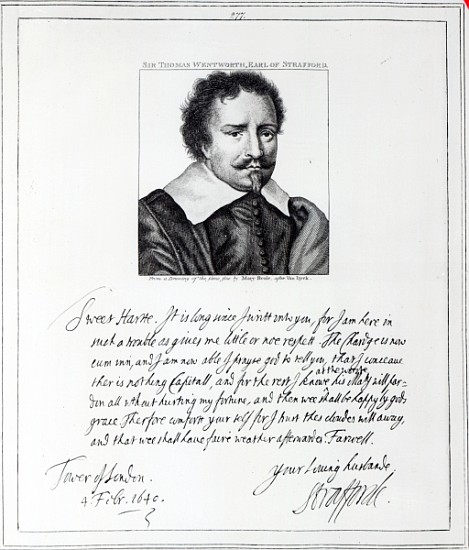 277.
SIR THOMAS WENTWORTH, EARL OF STRAFFORD.
From a Drawing of the same size by Mary Beale, after Van Dyck.
Sweet Harte. It is long since I writt unto you, for I am here in
such a trouble as gives me little or noe respett. The Chardge is now
cum inn, and I am now able I prayse god to tell you, that I conceave
ther is nothing Capitall, and for the rest I knowe his Maty will par-
at the worste
din all without hurting my fortune, and then wee shall be happy by gods
grace. Therfore comfort your self, for I trust thes cloudes will away,
and that wee shall have faire weather afterwardes. Farwell.
Your loving husbande
Tower of London.
4. Febr. 1640.
Strafforde